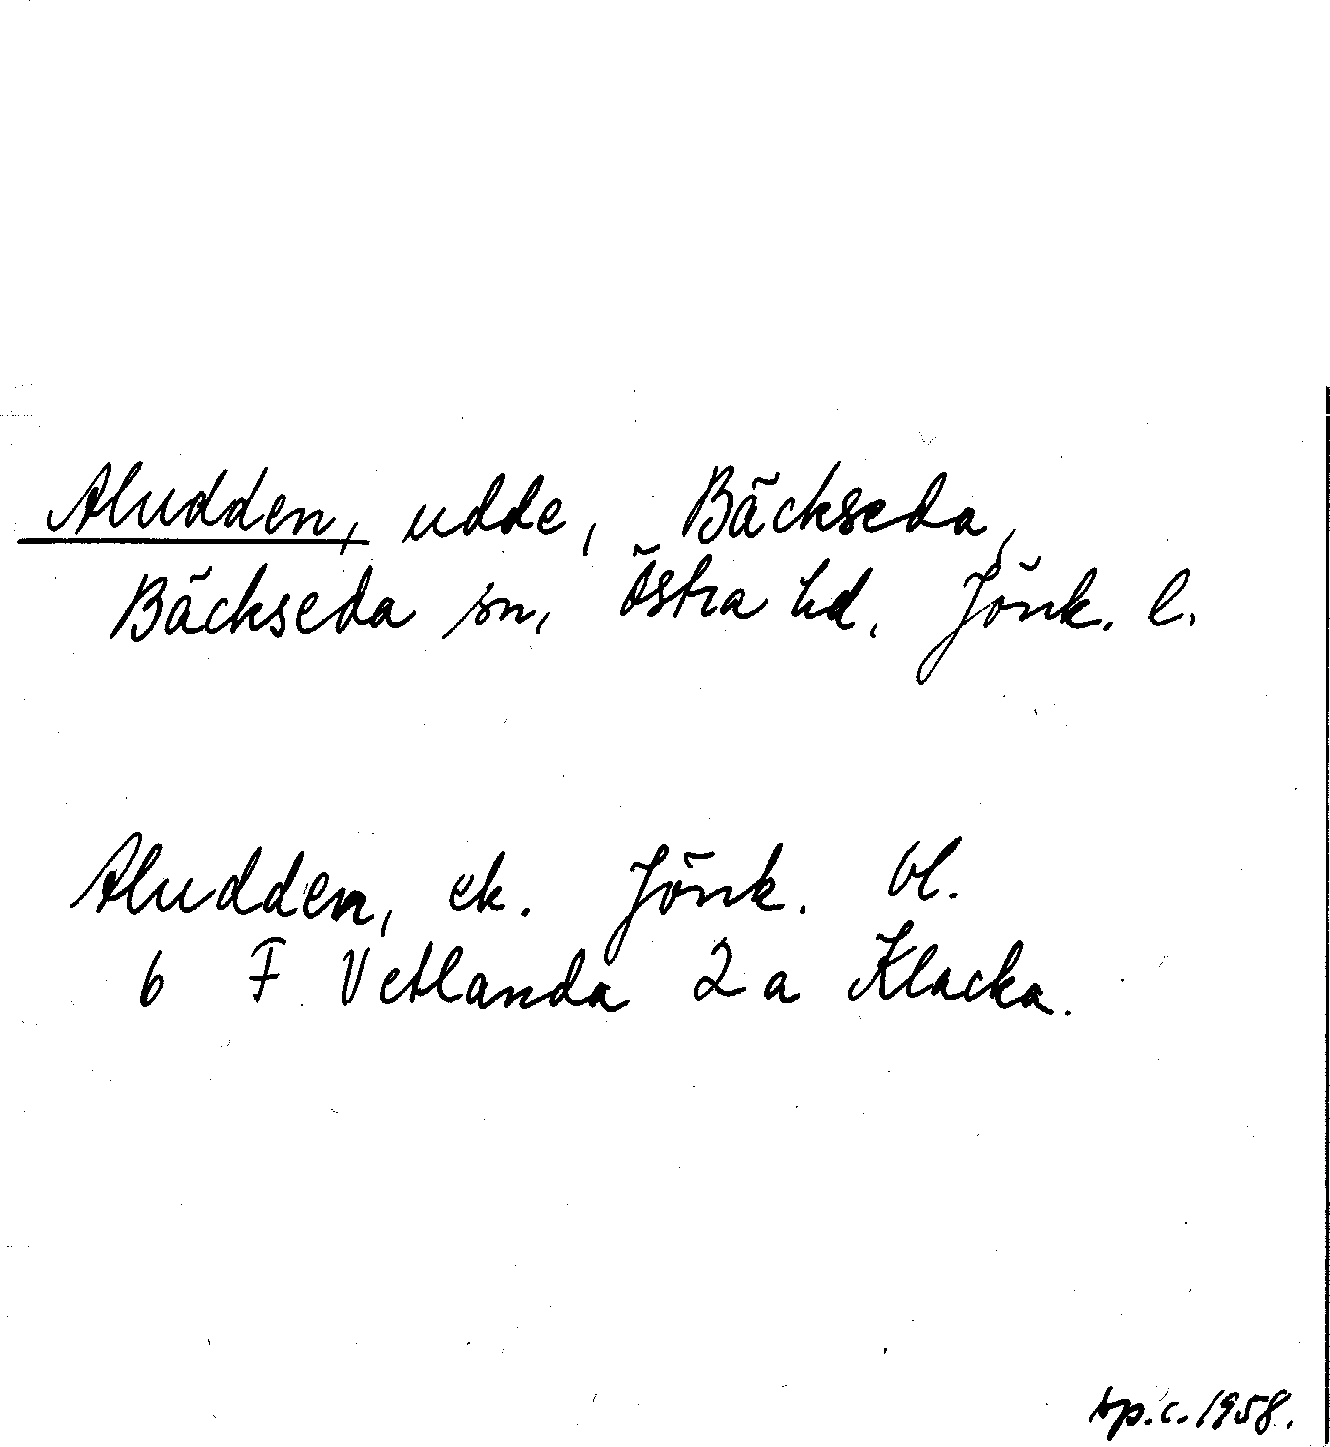 Aludden, udde, Bäckseda,
Bäckseda sn, Östra hd. Jönk. l.
Aludden, ek. Jönk. bl.
6 F Vetlanda 2 a Klacka.
tp.c. 1958.